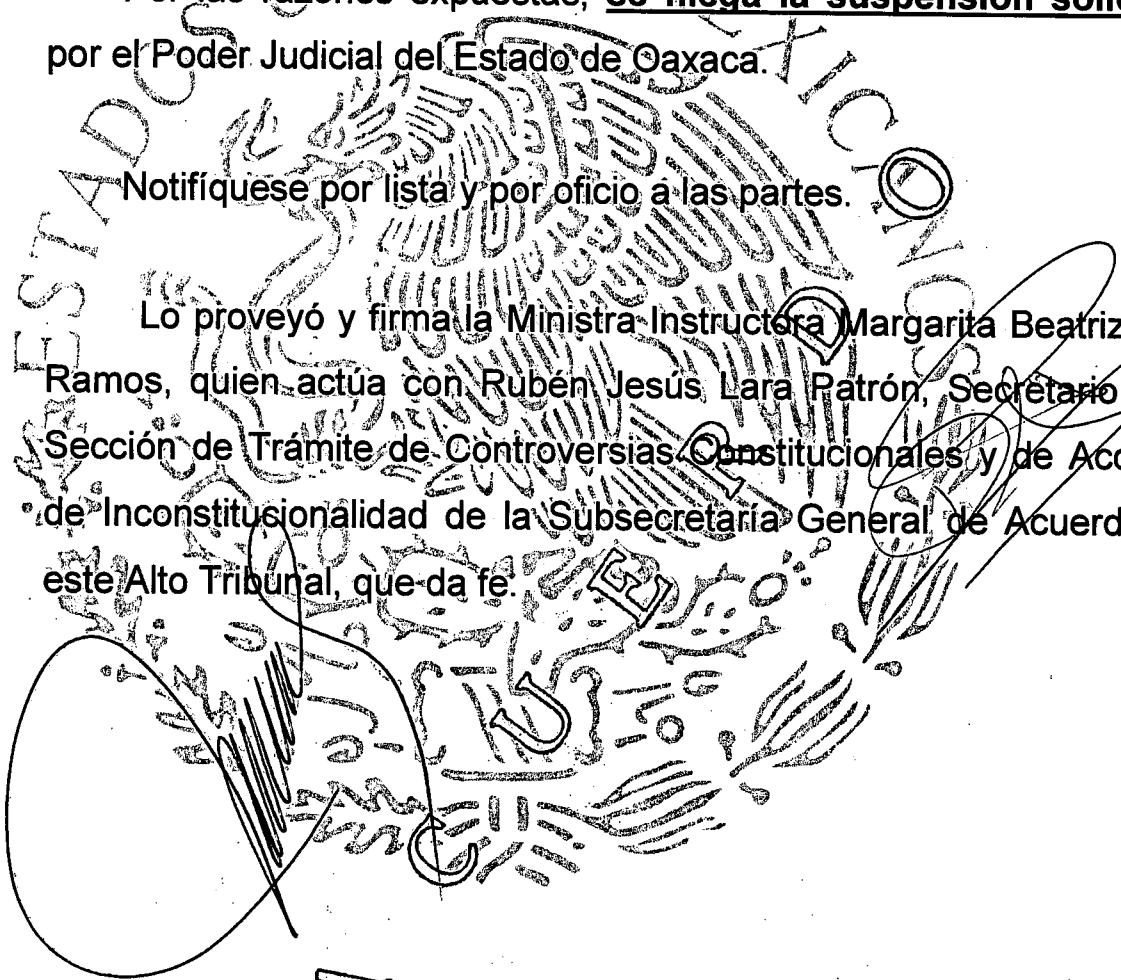 por las razones expuestas, se niega la suspensión
por el Poder Judicial del Estado de Oaxaca.
Notifíquese por lista y por oficio a las partes.
Lo proveyó y firma la Ministra Instructora Margarita Beatriz
Ramos, quien actúa con Rubén Jesús Lara Patrón, Secretario
Sección de Trámite de Controversias Constitucionales y de
de Inconstitucionalidad de la Subsecretaría General de
este Alto Tribunal, que da fe.
ESTADOS
MEXICANOS